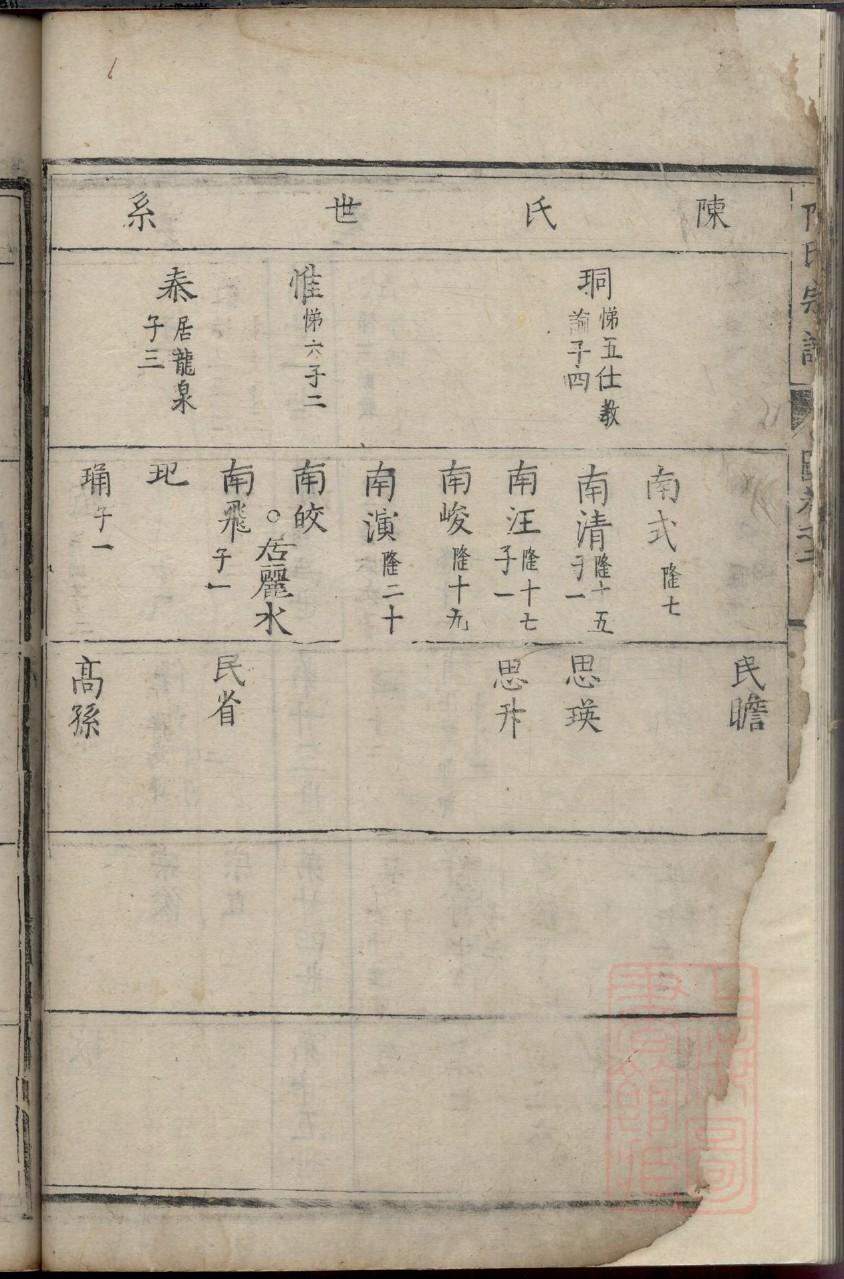 陳氏世系
珙悌五仕教諭子四
惟悌六子二
泰居龍泉子三
南式隆七
南清隆十五子一
南汪隆十七子一
南峻隆十九
南演隆二十
南皎
○居麗水
南飛子一
玘
珛子一
民瞻
思瑛
思升
民省
高孫